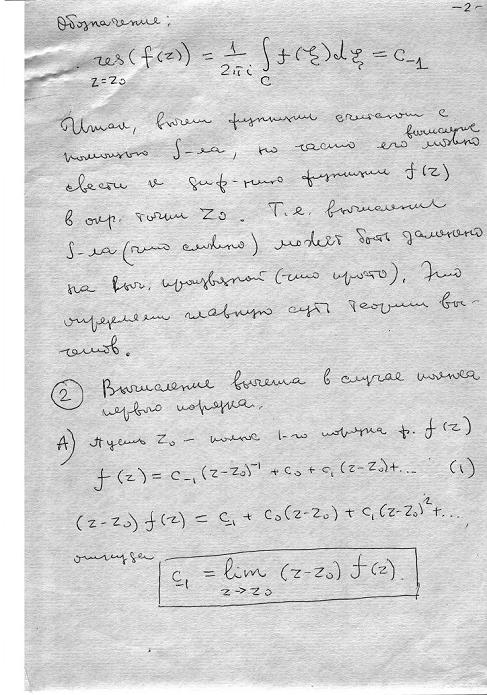 -2-
Обозначение:
res (f(z)) = 1/2πi ∫ f(ξ)dξ = c₋₁
z=z₀ C
Итак, вычет функции считают с
помощью ∫-ла, но часто его вычисление можно
свести к диф-нию функции f(z)
в окр. точки z₀. Т.е. вычисление
∫-ла (что сложно) может быть заменено
на выч. производной (что просто). Это
определяет главную суть теории вы-
четов.
② Вычисление вычета в случае полюса
первого порядка.
А) Пусть z₀ – полюс 1-го порядка ф. f(z)
f(z) = c₋₁(z-z₀)⁻¹ + c₀ + c₁(z-z₀)+... (1)
(z-z₀) f(z) = c₋₁ + c₀(z-z₀) + c₁(z-z₀)²+...
откуда
c₋₁ = lim (z-z₀) f(z).
z→z₀